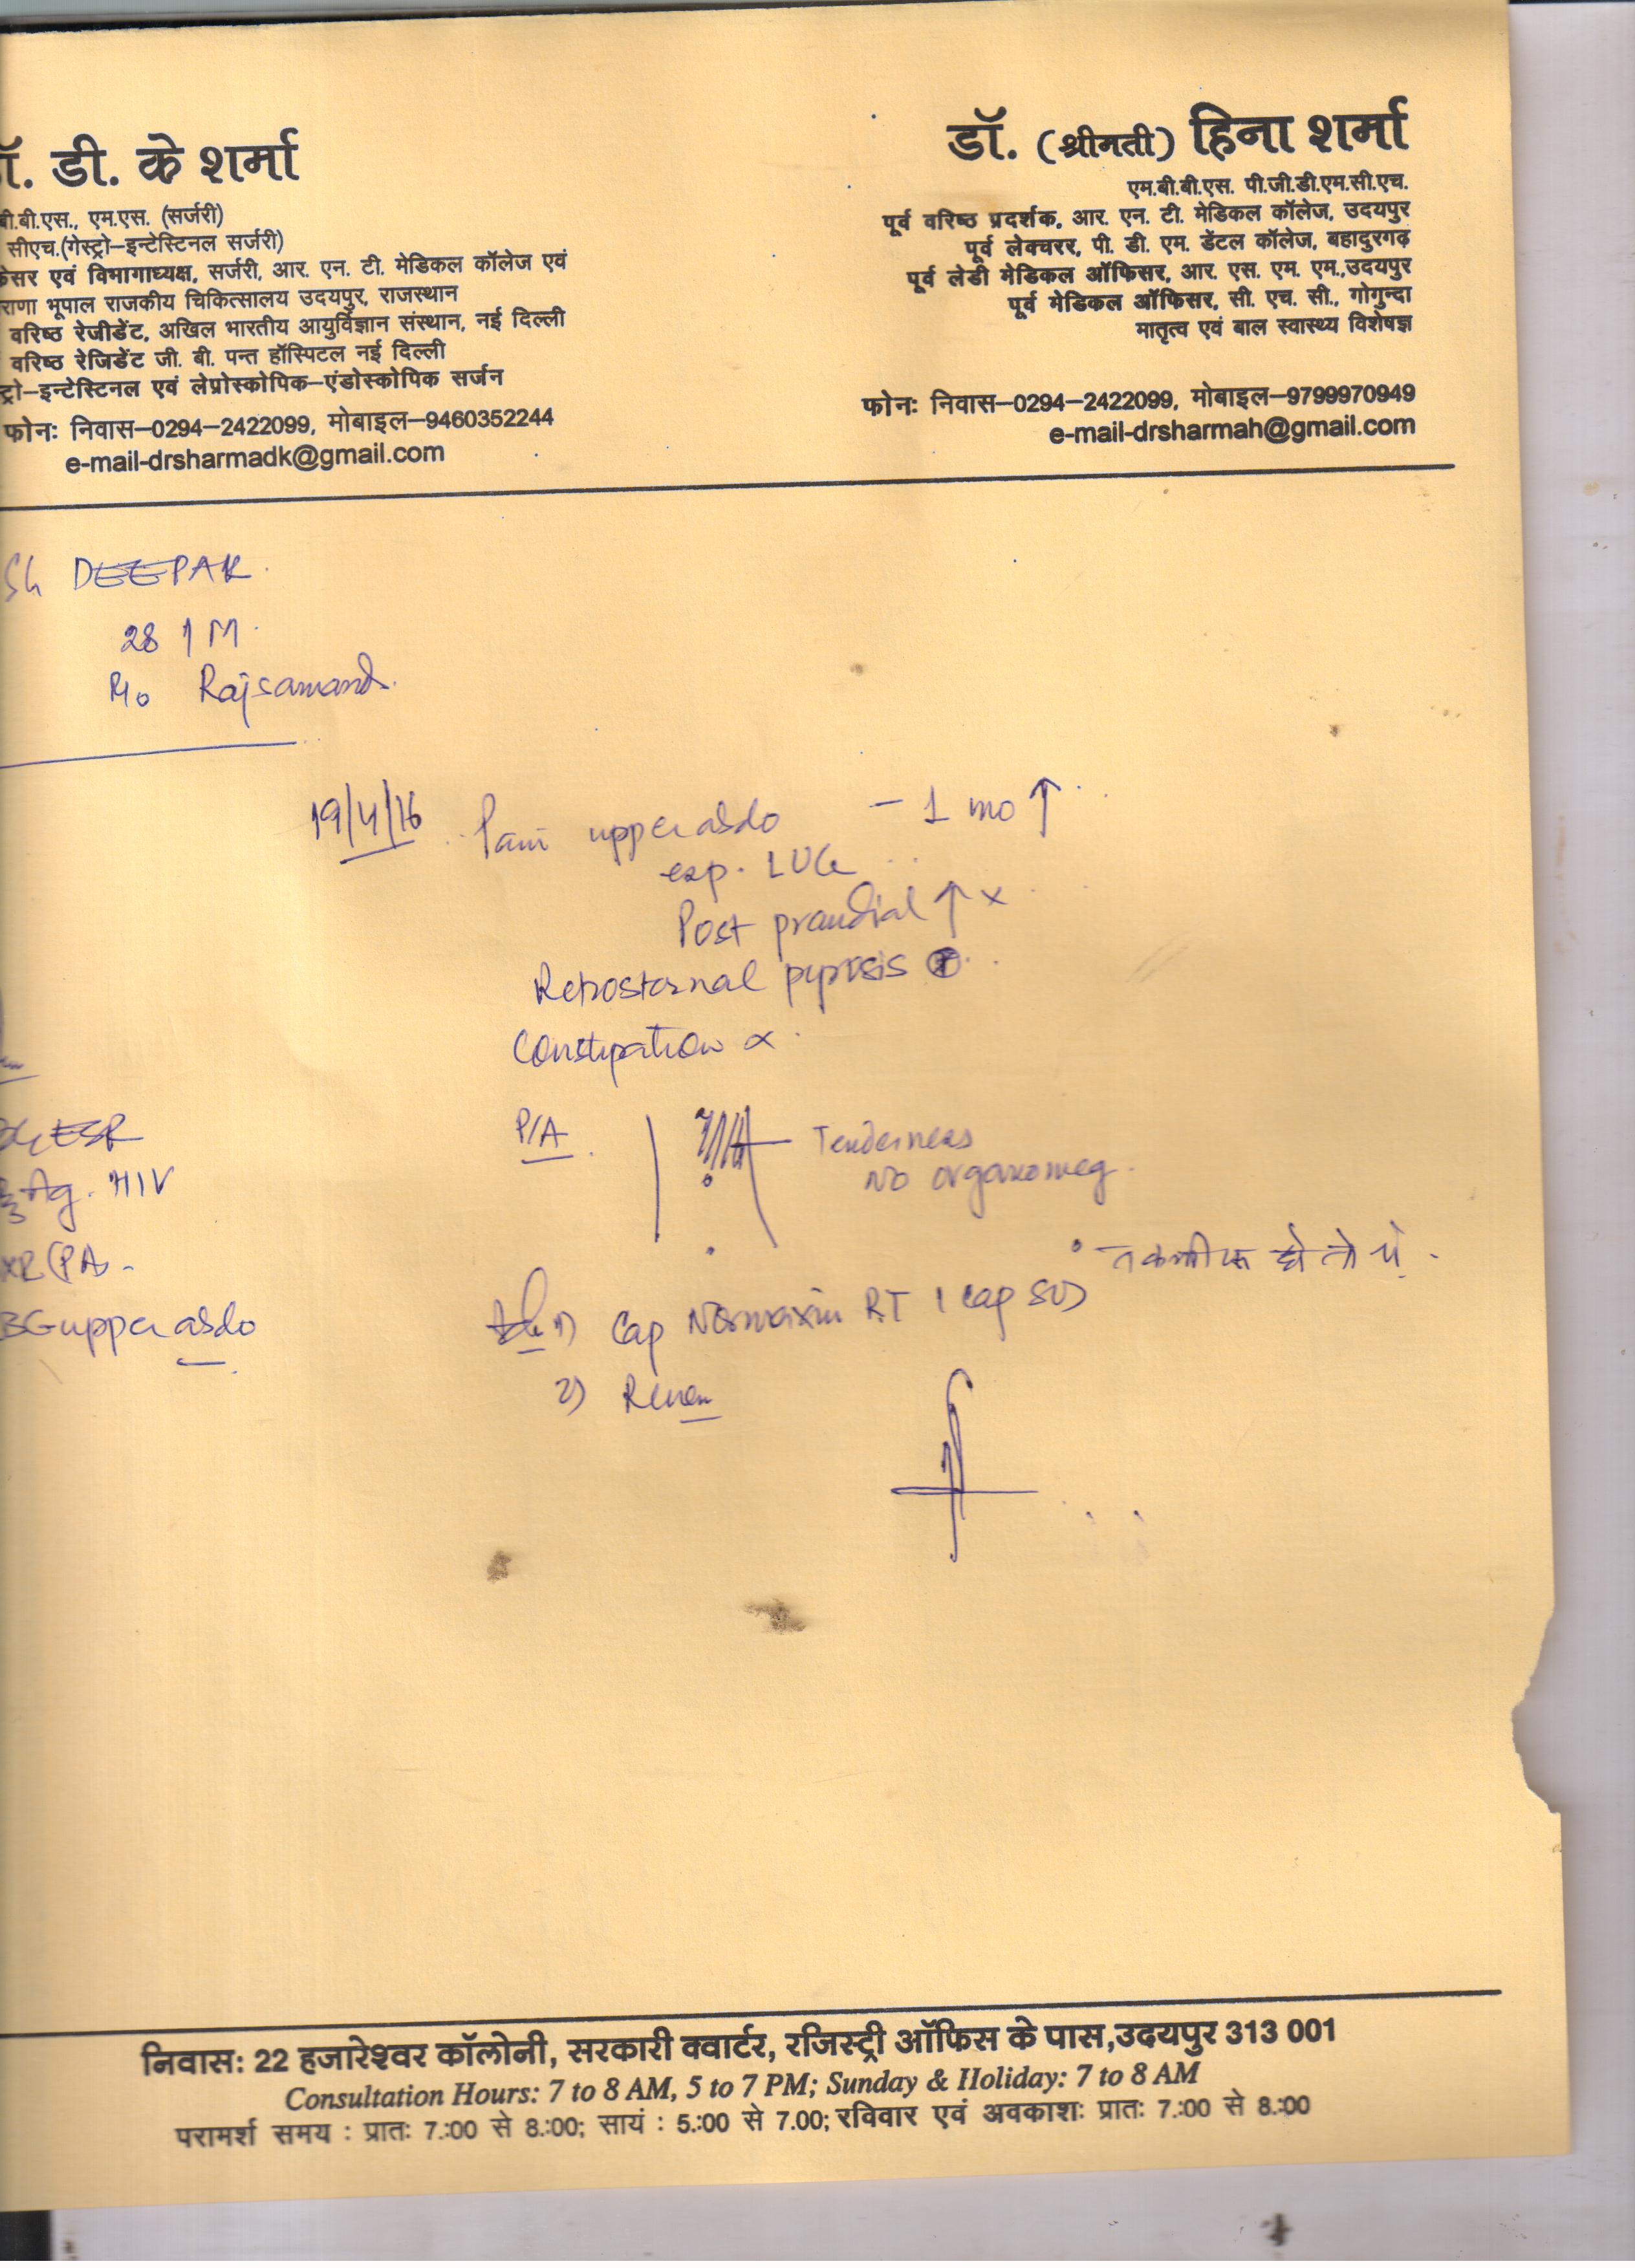 ॉ. डी. के शर्मा
बी.बी.एस., एम.एस. (सर्जरी)
सीएच.(गेस्ट्रो–इन्टेस्टिनल सर्जरी)
फेसर एवं विभागाध्यक्ष, सर्जरी, आर. एन. टी. मेडिकल कॉलेज एवं
राणा भूपाल राजकीय चिकित्सालय उदयपुर, राजस्थान
वरिष्ठ रेजीडेंट, अखिल भारतीय आयुर्विज्ञान संस्थान, नई दिल्ली
वरिष्ठ रेजिडेंट जी. बी. पन्त हॉस्पिटल नई दिल्ली
ट्रो–इन्टेस्टिनल एवं लेप्रोस्कोपिक–एंडोस्कोपिक सर्जन
फोनः निवास–0294–2422099, मोबाइल–9460352244
e-mail-drsharmadk@gmail.com
डॉ. (श्रीमती) हिना शर्मा
एम.बी.बी.एस. पी.जी.डी.एम.सी.एच.
पूर्व वरिष्ठ प्रदर्शक, आर. एन. टी. मेडिकल कॉलेज, उदयपुर
पूर्व लेक्चरर, पी. डी. एम. डेंटल कॉलेज, बहादुरगढ़
पूर्व लेडी मेडिकल ऑफिसर, आर. एस. एम. एम.,उदयपुर
पूर्व मेडिकल ऑफिसर, सी. एच. सी., गोगुन्दा
मातृत्व एवं बाल स्वास्थ्य विशेषज्ञ
फोनः निवास–0294–2422099, मोबाइल–9799970949
e-mail-drsharmah@gmail.com
Sh DEEPAK
28 / M
R/o Rajsamand.
19/4/16 Pain upper abdo – 1 mo ↑
esp. LUQ
Post prandial ↑ ×
Retrosternal pyrosis ⊕
Constipation ×
P/A Tenderness
No organomeg.
ESR
Ag. HIV
XR (PA)
upper abdo
तकलीफ हो तो ये
1) Cap Normaxin RT 1 cap
2) Review
निवासः 22 हजारेश्वर कॉलोनी, सरकारी क्वार्टर, रजिस्ट्री ऑफिस के पास,उदयपुर 313 001
Consultation Hours: 7 to 8 AM, 5 to 7 PM; Sunday & Holiday: 7 to 8 AM
परामर्श समय : प्रातः 7.:00 से 8.:00; सायं : 5.:00 से 7.00; रविवार एवं अवकाशः प्रातः 7.:00 से 8.:00